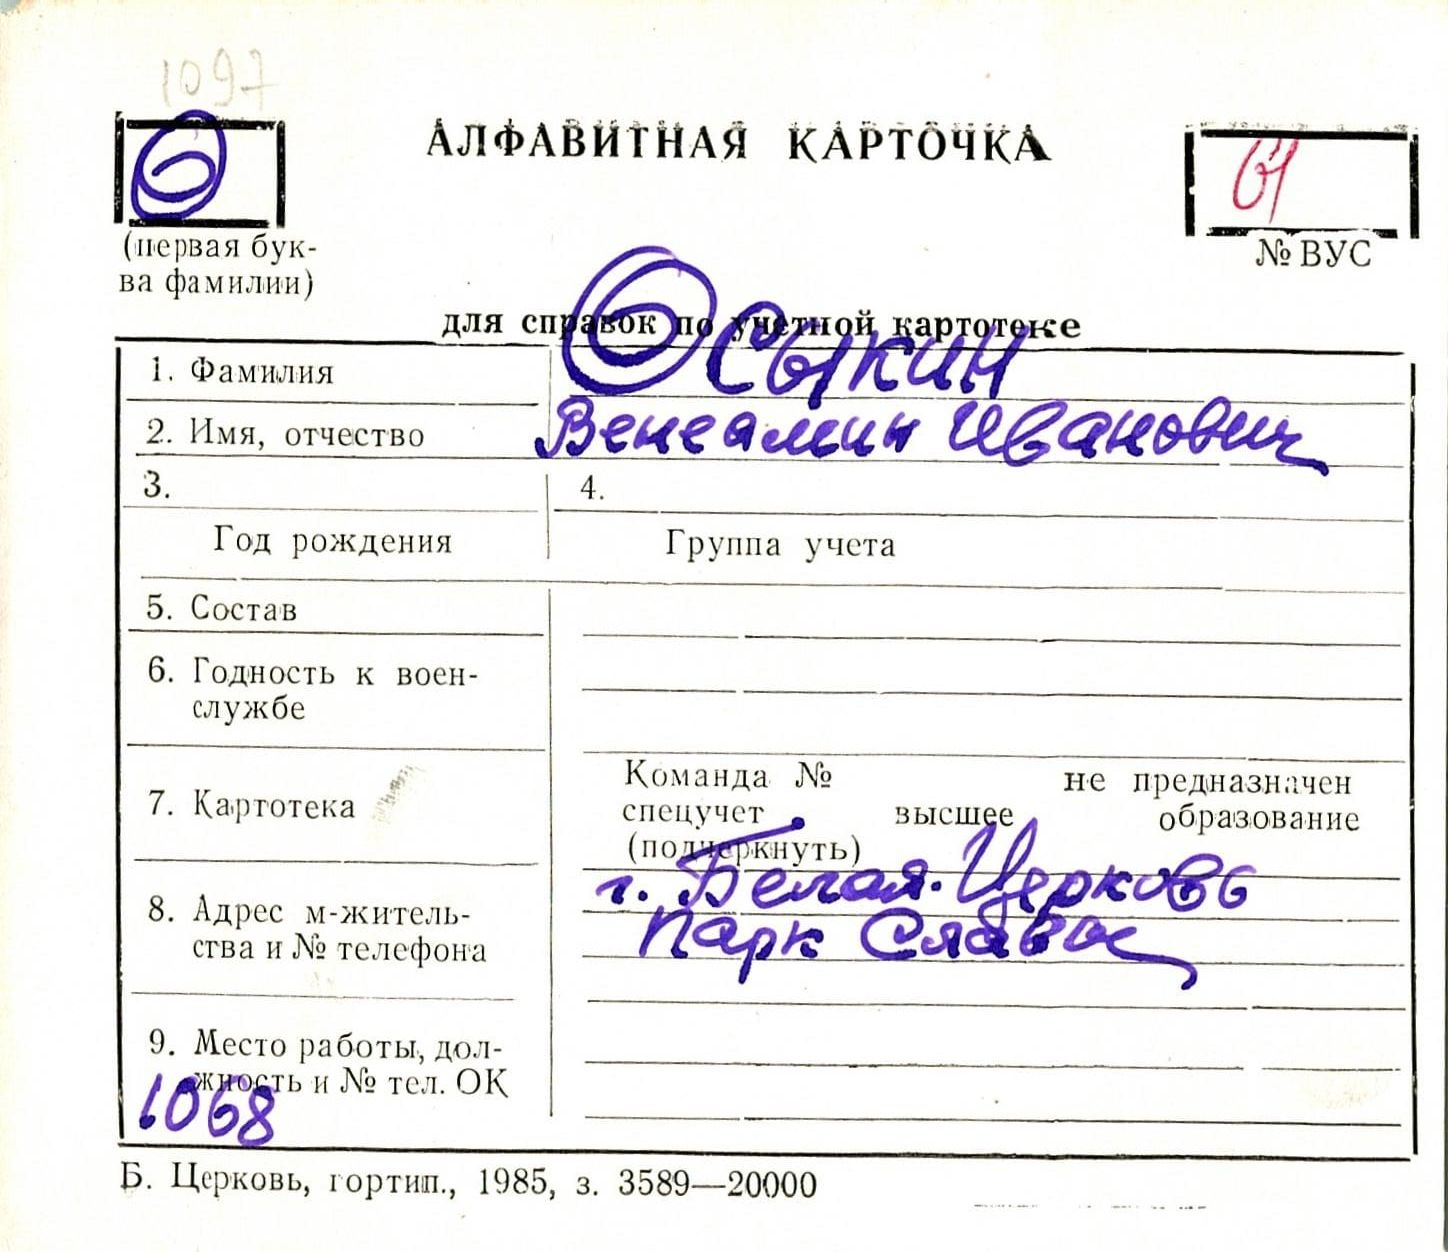 1097
О
АЛФАВИТНАЯ КАРТОЧКА
61
(первая бук-
ва фамилии)
№ ВУС
для справок по учетной картотеке
1. Фамилия Осыкин
2. Имя, отчество Венеамин Иванович
3. 4.
Год рождения Группа учета
5. Состав
6. Годность к воен-
службе
7. Картотека
Команда № не предназначен
спецучет высшее образование
(подчеркнуть)
8. Адрес м-житель-
ства и № телефона
г. Белая-Церковь
Парк Славы
9. Место работы, дол-
жность и № тел. ОК
1068
Б. Церковь, гортип., 1985, з. 3589—20000